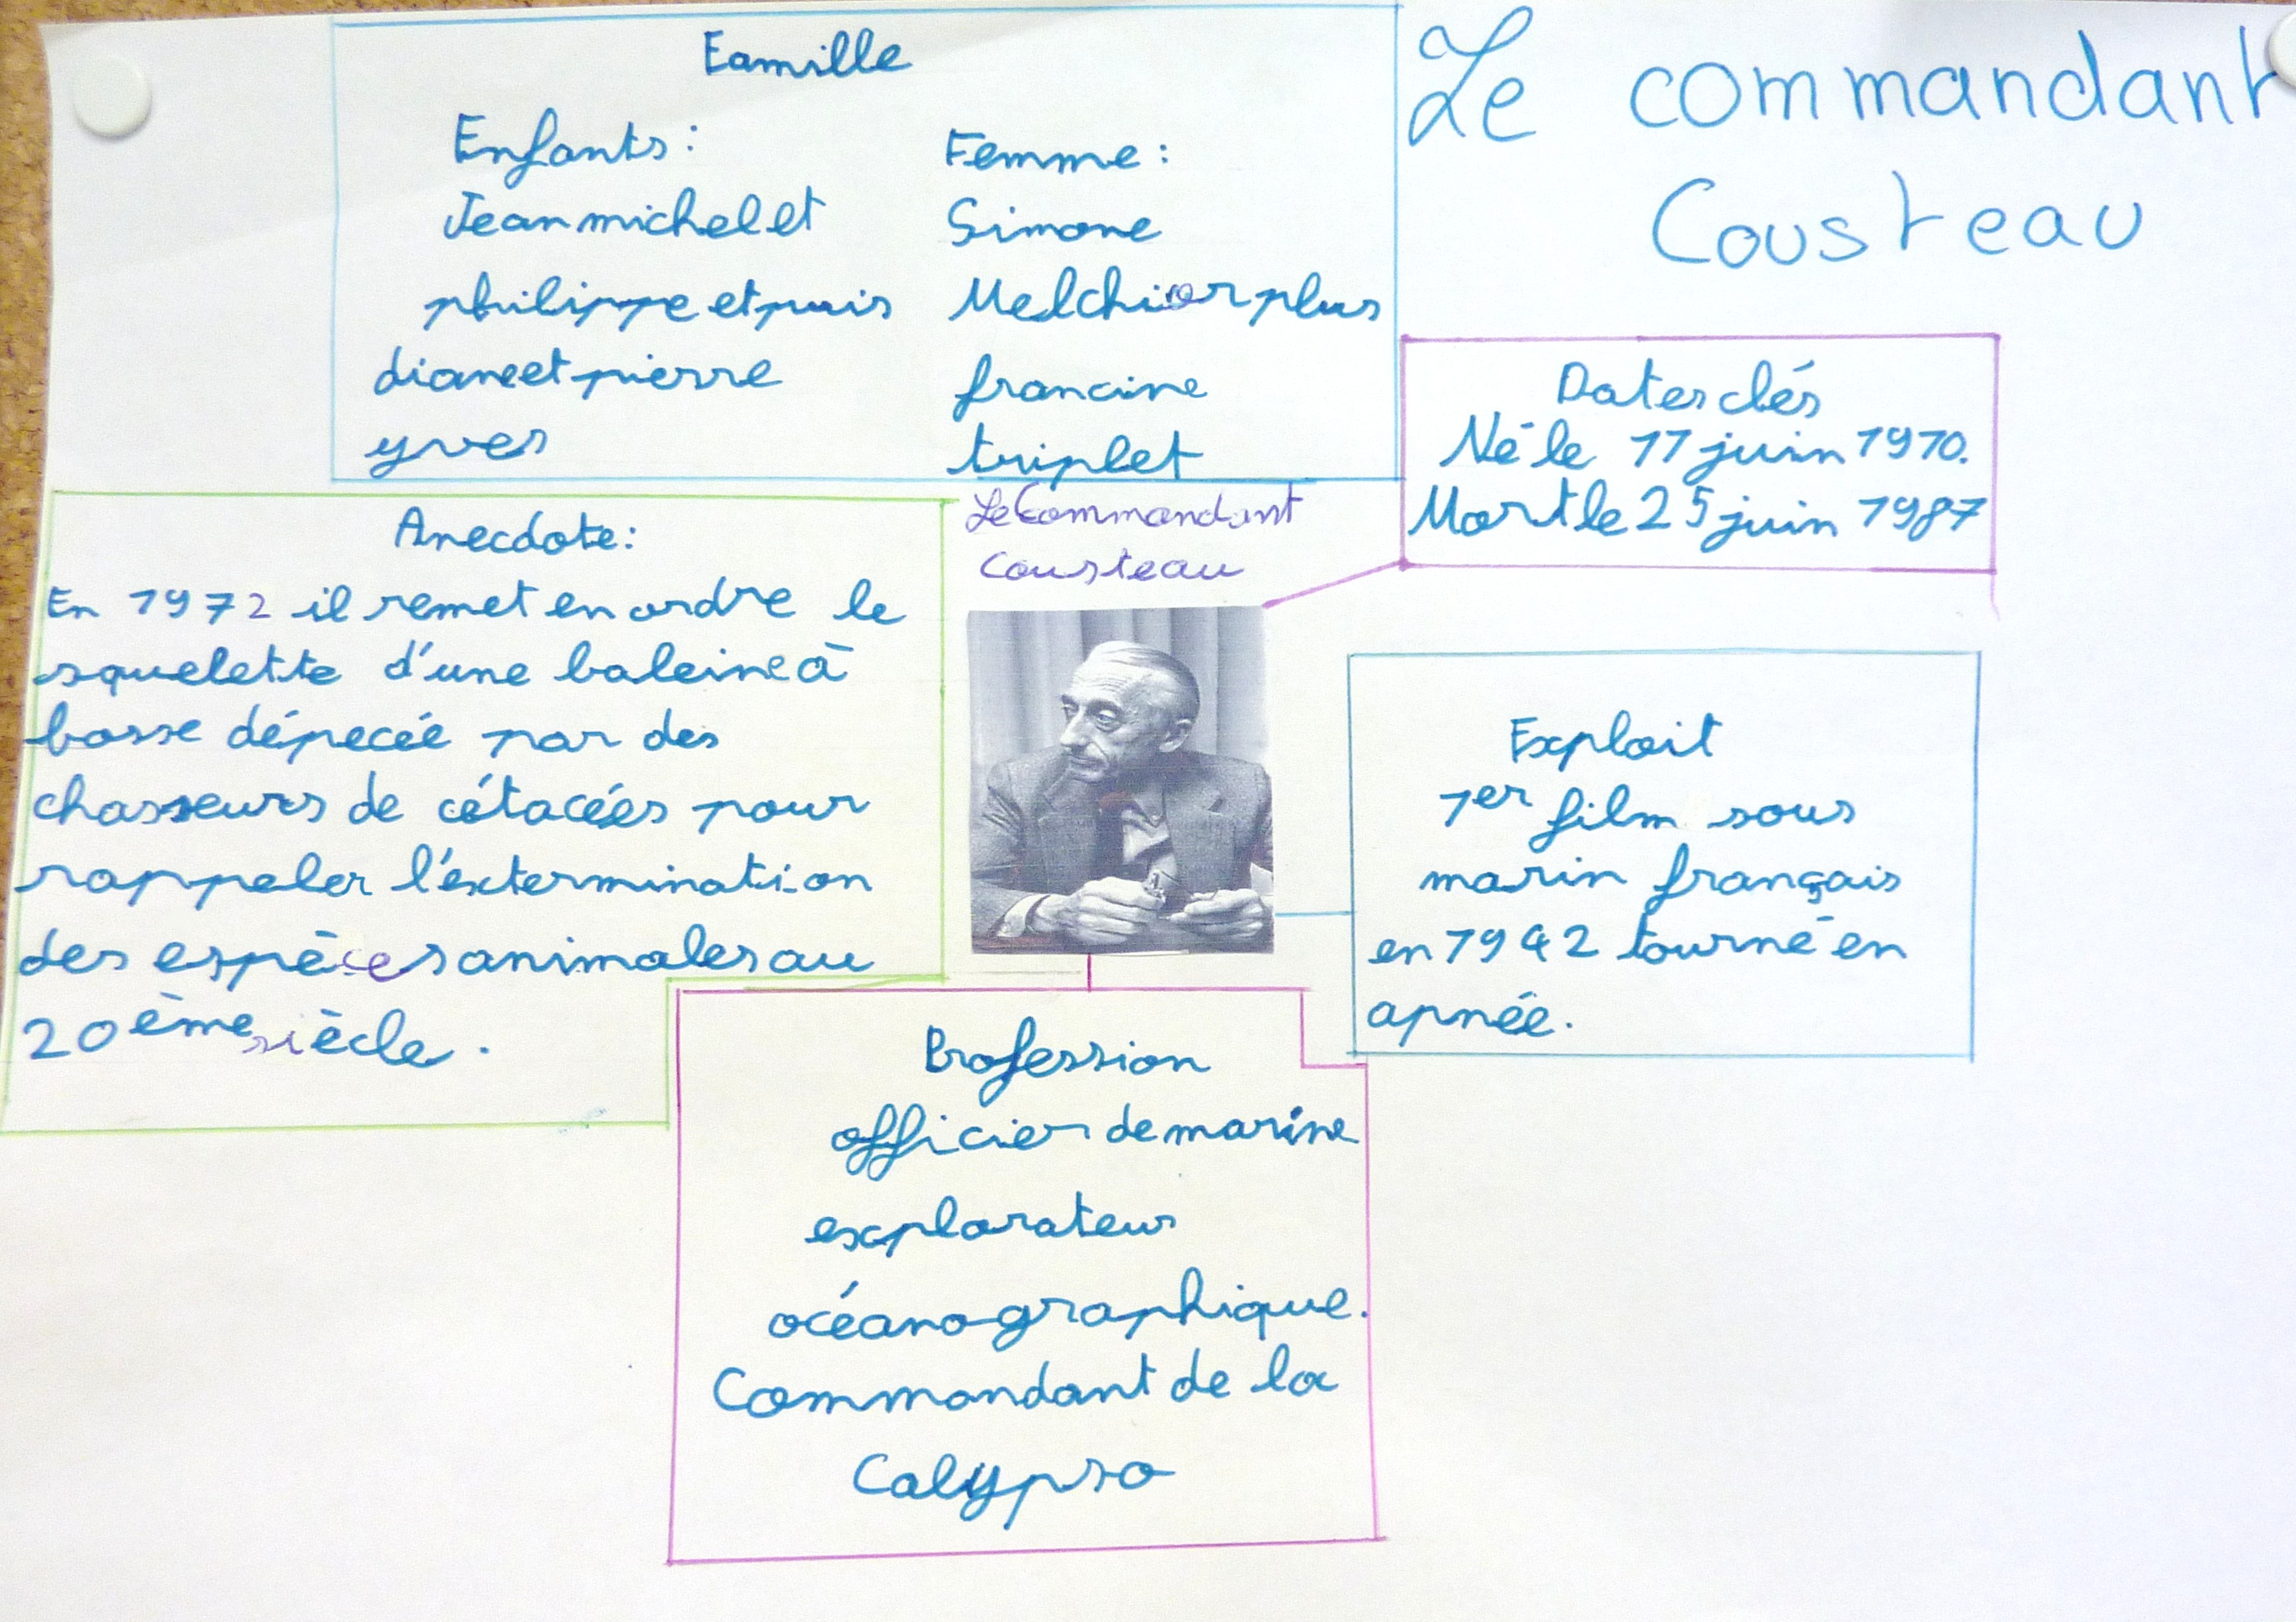 Le commandant
Cousteau
Famille
Enfants :
Jean michel et
philippe et puis
diane et pierre
yves
Femme :
Simone
Melchior plus
francine
triplet
Dates clés
Né le 11 juin 1910.
Mort le 25 juin 1987
Anecdote :
En 1972 il remet en ordre le
squelette d'une baleine à
bosse dépecée par des
chasseurs de cétacées pour
rappeler l'extermination
des espèces animales au
20ème siècle.
Le Commandant
Cousteau
Exploit
1er film sous
marin français
en 1942 tourné en
apnée.
Profession
officier de marine
explorateur
océanographique.
Commandant de la
Calypso